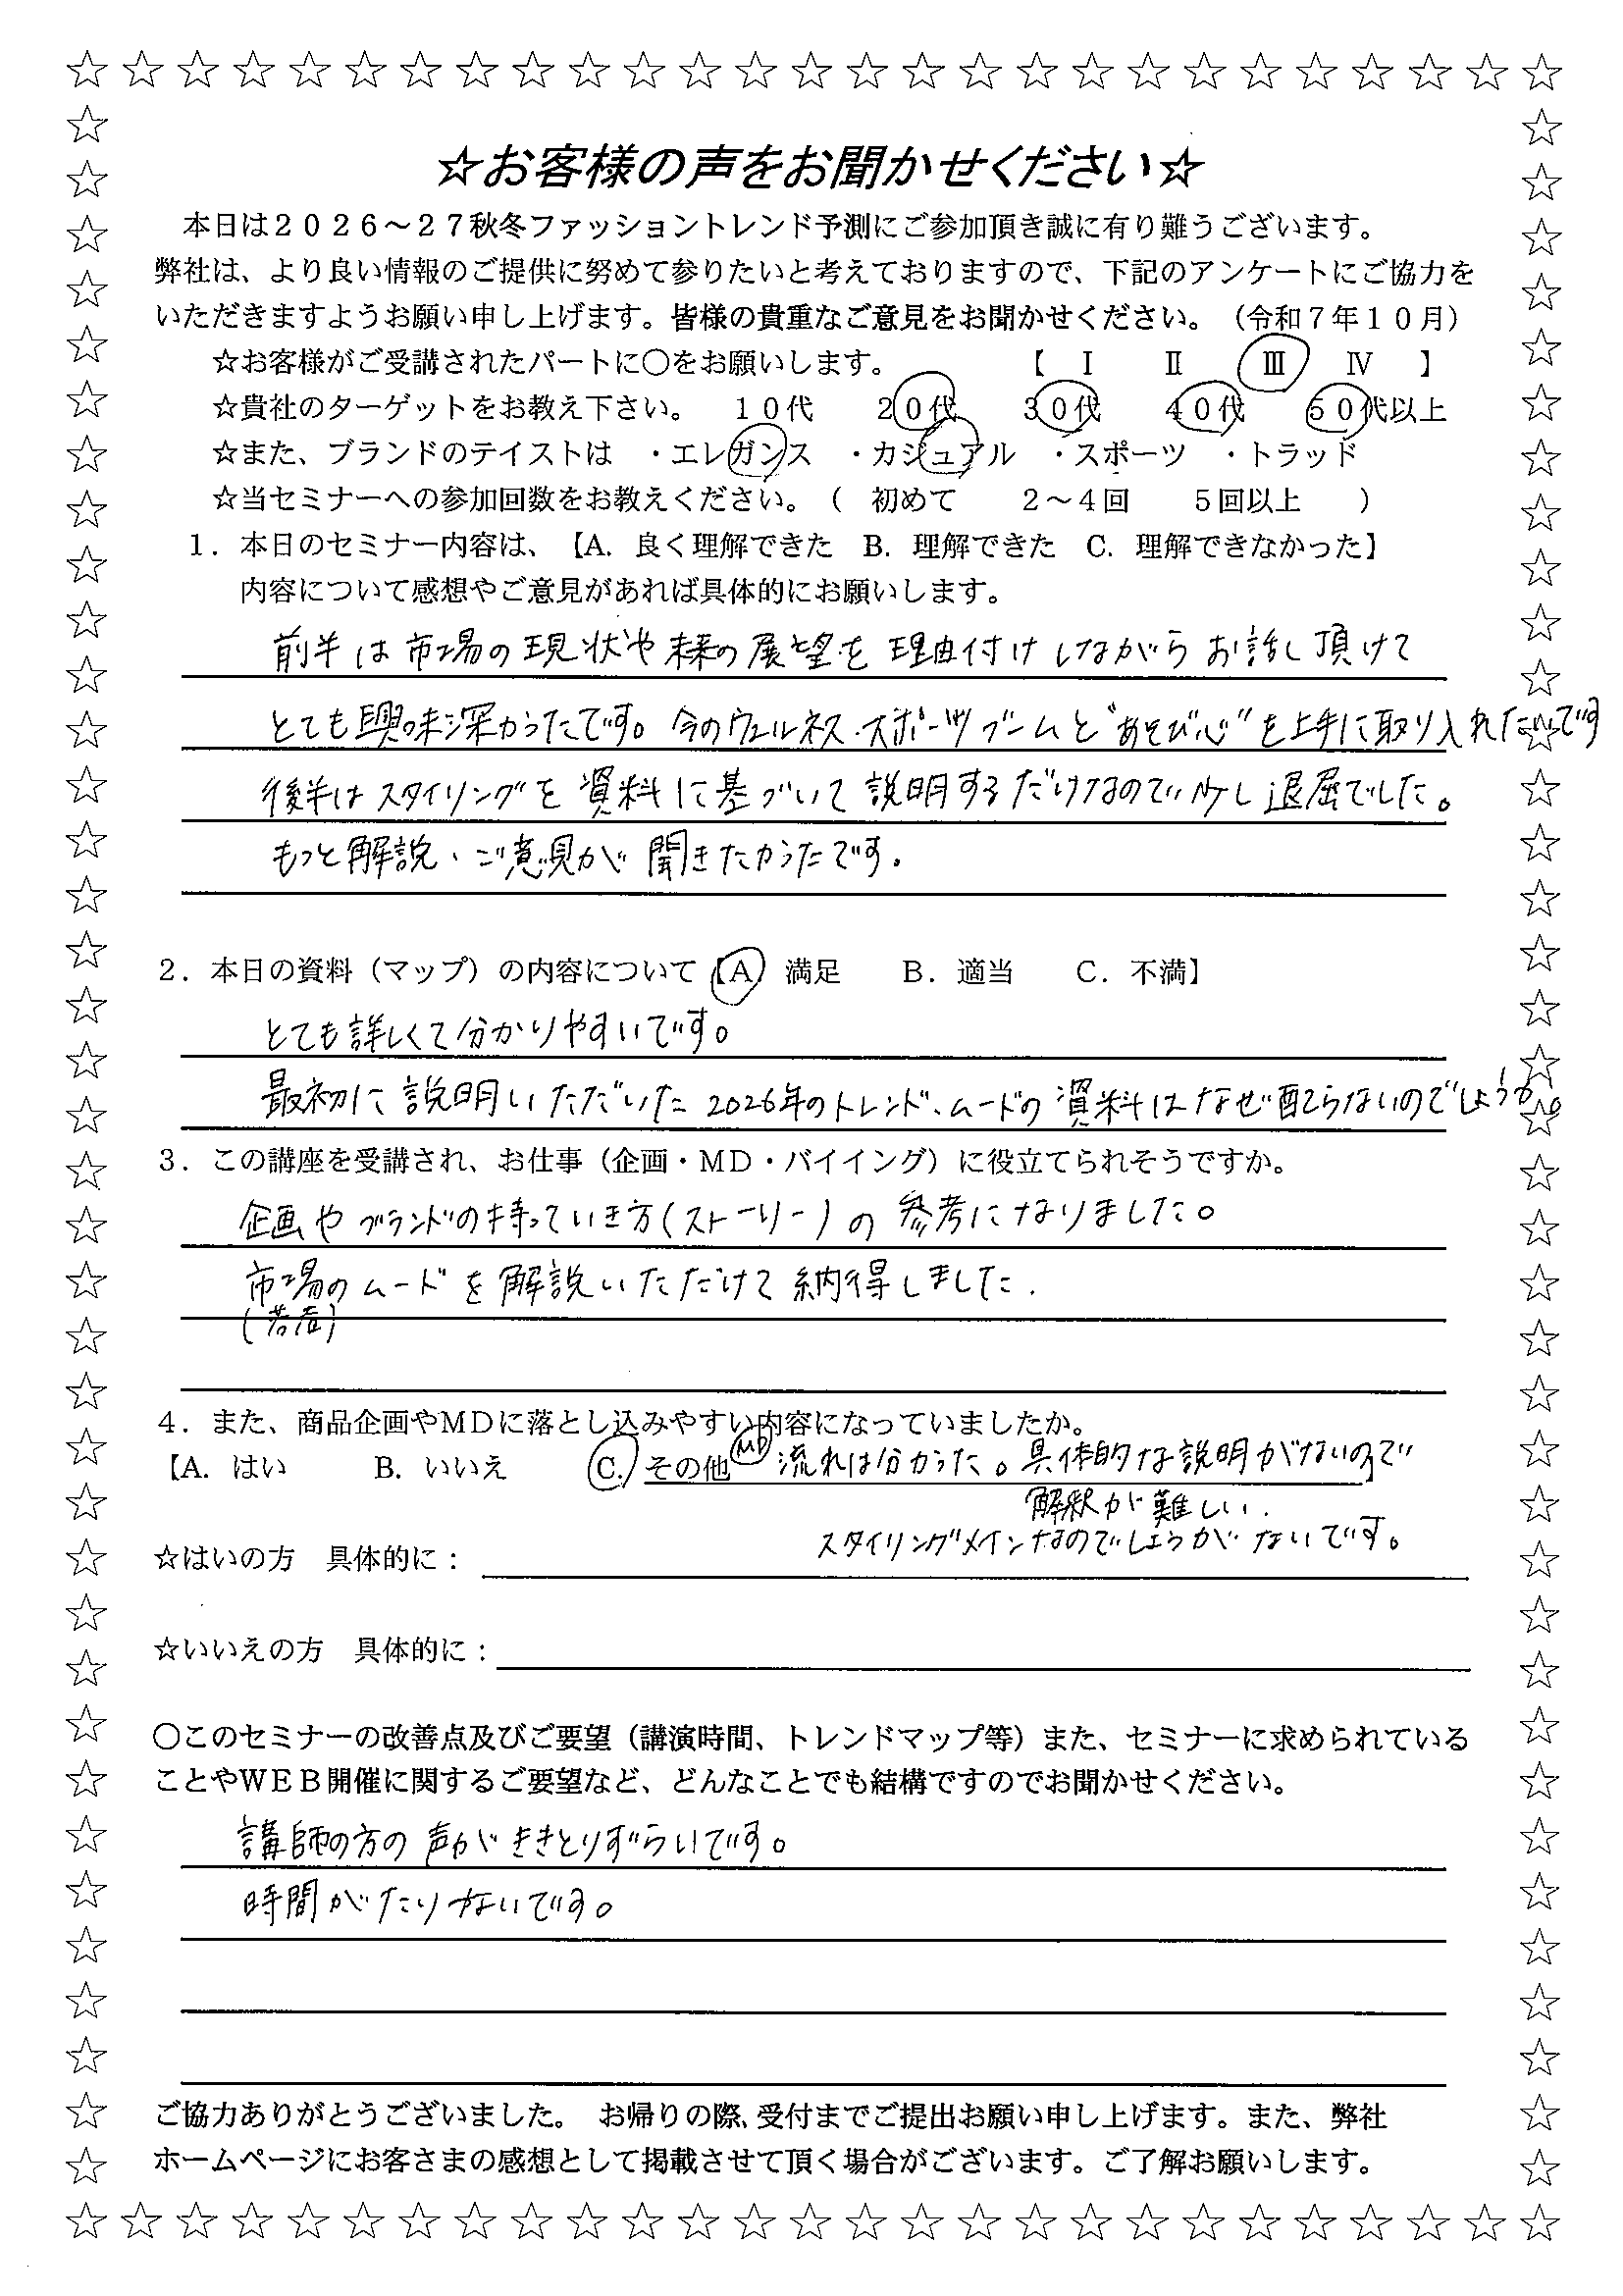 ☆お客様の声をお聞かせください☆
本日は2026～27秋冬ファッショントレンド予測にご参加頂き誠に有り難うございます。
弊社は、より良い情報のご提供に努めて参りたいと考えておりますので、下記のアンケートにご協力を
いただきますようお願い申し上げます。皆様の貴重なご意見をお聞かせください。（令和7年10月）
☆お客様がご受講されたパートに○をお願いします。　【　Ⅰ　Ⅱ　Ⅲ　Ⅳ　】
☆貴社のターゲットをお教え下さい。　10代　20代　30代　40代　50代以上
☆また、ブランドのテイストは　・エレガンス　・カジュアル　・スポーツ　・トラッド
☆当セミナーへの参加回数をお教えください。（　初めて　2～4回　5回以上　）
1．本日のセミナー内容は、【A．良く理解できた　B．理解できた　C．理解できなかった】
内容について感想やご意見があれば具体的にお願いします。
前半は市場の現状や未来の展望を理由付けしながらお話し頂けて
とても興味深かったです。今のウェルネス・スポーツブームと"あそび心"を上手に取り入れたいです
後半はスタイリングを資料に基づいて説明するだけなので少し退屈でした。
もっと解説、ご意見が聞きたかったです。
2．本日の資料（マップ）の内容について【A．満足　B．適当　C．不満】
とても詳しくて分かりやすいです。
最初に説明いただいた2026年のトレンド、ムードの資料はなぜ配らないのでしょうか。
3．この講座を受講され、お仕事（企画・MD・バイイング）に役立てられそうですか。
企画やブランドの持っていき方(ストーリー)の参考になりました。
市場のムードを解説いただけて納得しました.
(若者)
4．また、商品企画やMDに落とし込みやすい内容になっていましたか。
【A．はい　B．いいえ　C．その他 MD 流れは分かった。具体的な説明がないので】
解釈が難しい.
スタイリングメインなのでしょうがないです。
☆はいの方　具体的に：
☆いいえの方　具体的に：
○このセミナーの改善点及びご要望（講演時間、トレンドマップ等）また、セミナーに求められている
ことやWEB開催に関するご要望など、どんなことでも結構ですのでお聞かせください。
講師の方の声がききとりずらいです。
時間がたりないです。
ご協力ありがとうございました。　お帰りの際、受付までご提出お願い申し上げます。また、弊社
ホームページにお客さまの感想として掲載させて頂く場合がございます。ご了解お願いします。